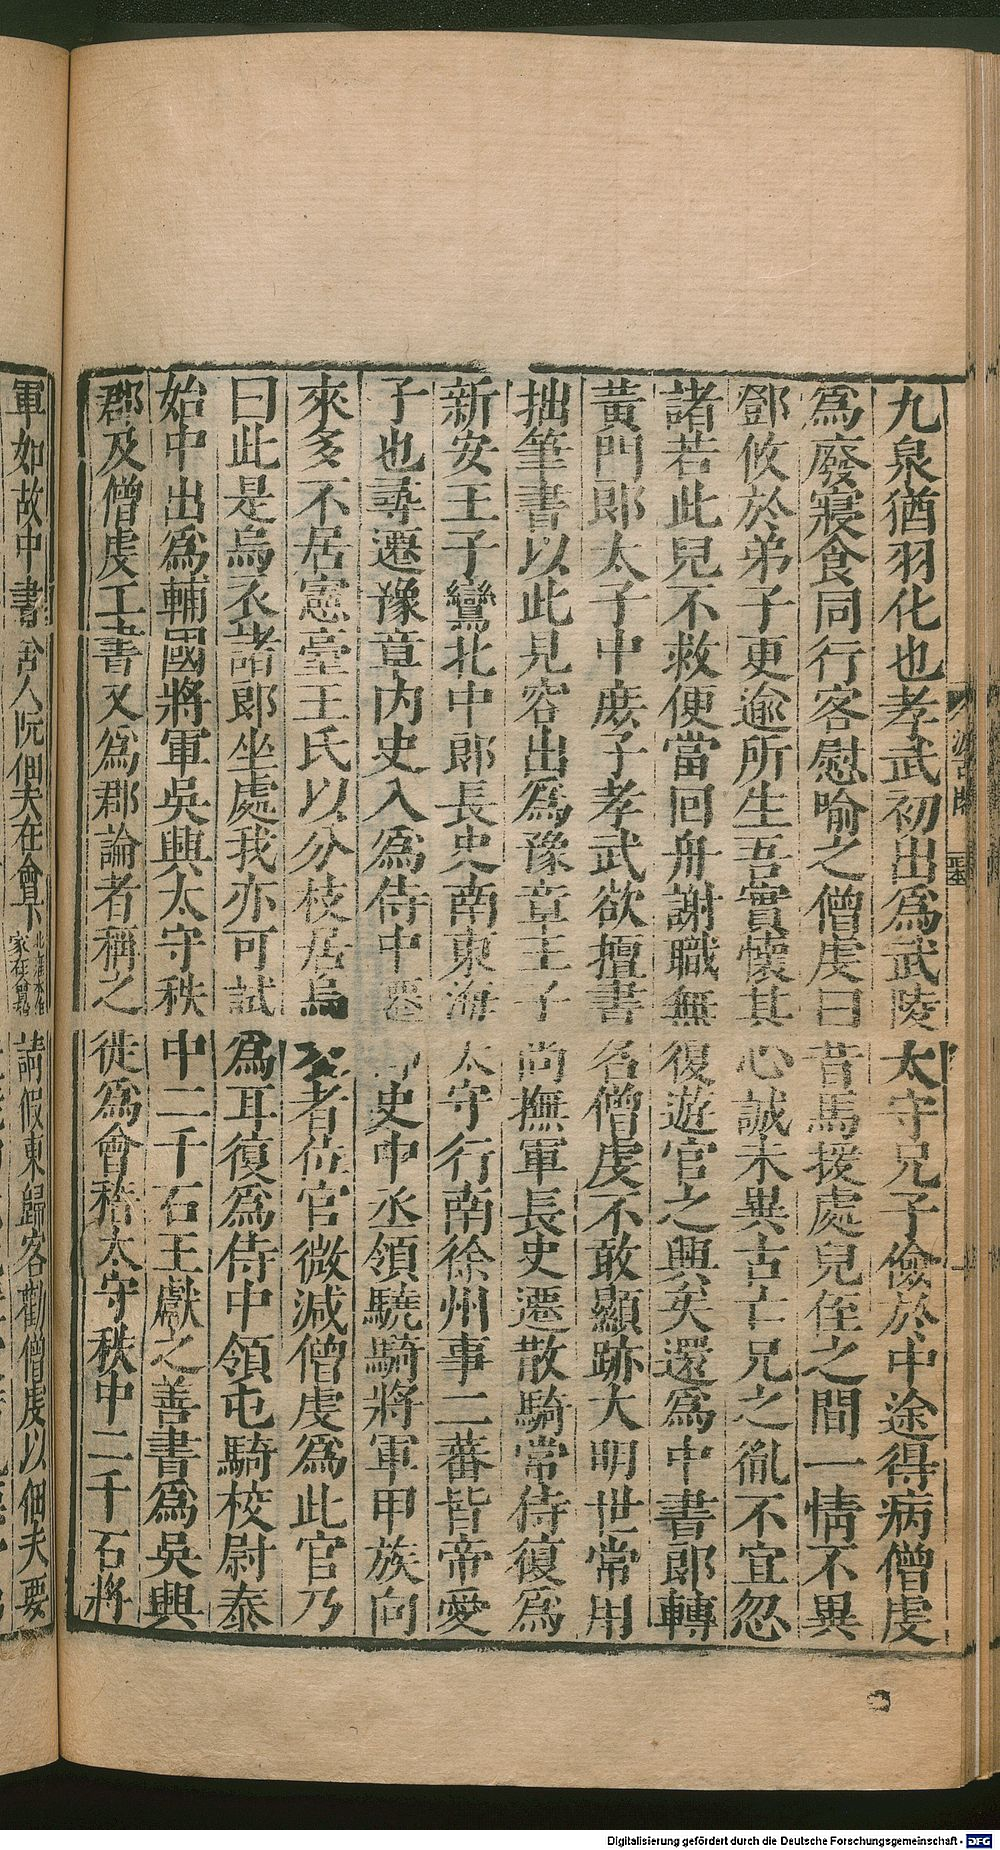 九泉猶羽化也孝武初出爲武陵太守兄子儉於中途得病僧虔
爲廢寢食同行客慰喻之僧虔曰昔馬援處兒侄之間一情不異
鄧攸於弟子更逾所生吾實懷其心誠未異古亡兄之胤不宜忽
諸若此兒不救便當回舟謝職無復遊官之興矣還爲中書郎轉
黃門郎太子中庶子孝武欲擅書名僧虔不敢顯跡大明世常用
拙筆書以此見容出爲豫章王子尚撫軍長史遷散騎常侍復爲
新安王子鸞北中郎長史南東海太守行南徐州事二蕃皆帝愛
子也尋遷豫章內史入爲侍中史中丞領驍騎將軍甲族向
來多不居憲臺王氏以分枝居烏者位官微減僧虔爲此官乃
曰此是烏衣諸郎坐處我亦可試爲耳復爲侍中領屯騎校尉泰
始中出爲輔國將軍吳興太守秩中二千石王獻之善書爲吳興
郡及僧虔工書又爲郡論者稱之徙爲會稽太守秩中二千石將
軍如故中書舍人阮佃夫在會下請假東歸客勸僧虔以佃夫要
Digitalisierung gefördert durch die Deutsche Forschungsgemeinschaft - DFG